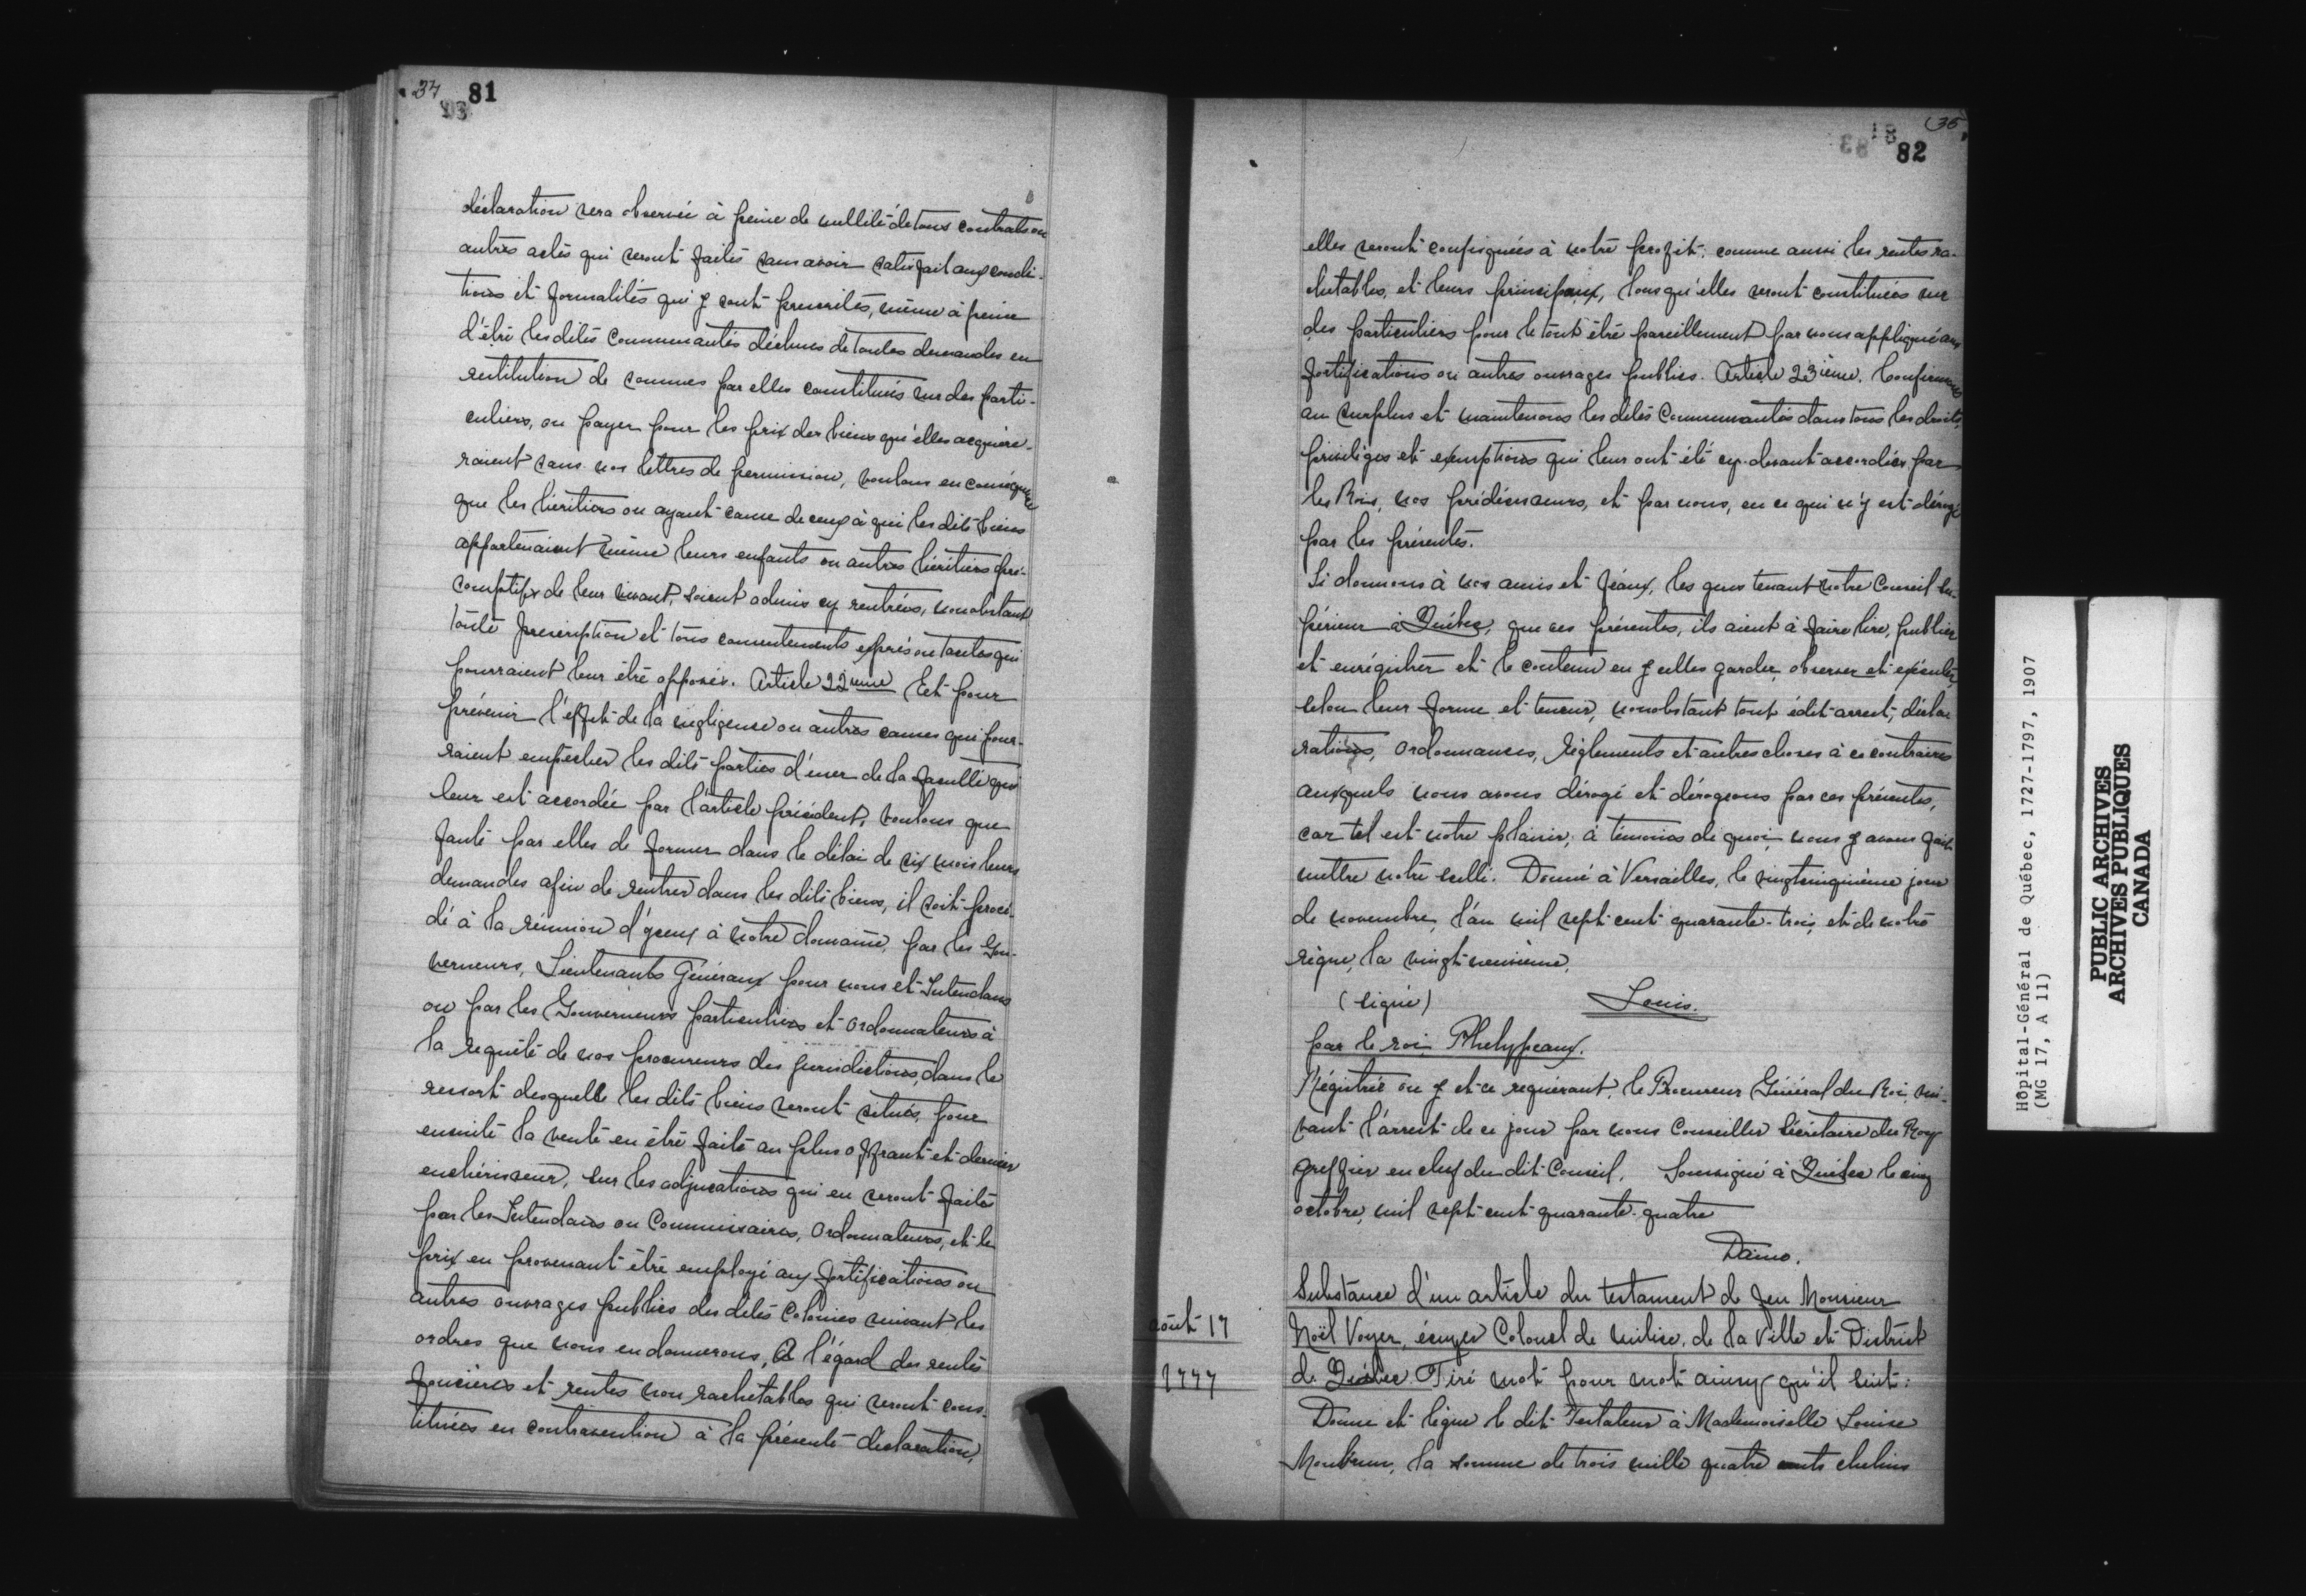 34 81
93
déclaration sera observée à peine de nullité de tous contrats ou
autres actes qui seront faites sans avoir satisfait aux condi-
tions et formalités qui y sont prescrites, même à peine
d'être les dites Communautés déchues de toutes demandes en
restitution de sommes par elles constituées sur des parti-
culiers, ou payer pour les prix des biens qu'elles acquière-
raient sans nos lettres de permission, voulons en conséquence
que les héritiers ou ayant cause de ceux à qui les dits biens
appartenaient même leurs enfants ou autres héritiers pré-
somptifs de leur vivant, soient admis cy rentrées, nonobstant
toute prescription et tous consentements exprès ou tacites qui
pourraient leur être opposés. Article 22ième Et pour
prévenir l'effet de la négligence ou autres causes qui pour-
raient empêcher les dits parties d'user de la faculté qui
leur est accordée par l'article précédent, voulons que
faute par elles de former dans le délai de six mois leurs
demandes afin de rentrer dans les dits biens, il soit procé-
dé à la réunion d'yceux à notre domaine, par les Gou-
verneurs, Lieutenants Généraux pour nous et Intendans
ou par les Gouverneurs particuliers et ordonnateurs à
la requête de nos procureurs des jurisdictions, dans le
ressort desquelle les dits biens seront situés, pour
ensuite la vente en être faite au plus offrant et dernier
enchérisseur, sur les adjucations qui en seront faites
par les Intendans ou Commissaires, Ordonnateurs, et le
prix en provenant être employé aux fortifications ou
autres ouvrages publics des dites Colonies suivant les
ordres que nous en donnerons, A l'égard des rentes
foncières et rentes non rachetables qui seront cons-
tituées en contravention à la présente déclaration,
35
83 81 82
elles seront confisquées à notre profit; comme aussi les rentes ra-
chetables, et leurs principaux, lorsqu'elles seront constituées sur
des particuliers pour le tout être pareillement par nous appliqué aux
fortifications ou autres ouvrages publics. Article 23ième. Confirmons
au surplus et maintenons les dites Communautés dans tous les droits,
privilèges et exemptions qui leur ont été cy-devant accordées par
les Rois, nos prédécesseurs, et par nous, en ce qui n'y est dérogé
par les présentes.
Si donnons à nos amis et féaux, les gens tenant notre Conseil Su-
périeur à Québec, que ces présentes, ils aient à faire lire, publier
et enrégistrer et le contenu en y celles garder, observer et exécuter,
selon leur forme et teneur, nonobstant tout édit arrest, décla
rations, ordonnances, règlements et autres choses à ce contraires
auxquels nous avons dérogé et dérogeons par ces présentes,
car tel est notre plaisir; à témoins de quoi, nous y avons fait
mettre notre scelle. Donné à Versailles, le vingtcinquième jour
de novembre, l'an mil sept cent quarante-trois, et de notre
règne, la vingt-neuvième,
(signé) Louis.
par le roi, Phelypeaux.
Régistrée ou y et ce requérant, le Procureur Général du Roi, sui-
vant l'arrest de ce jour par nous Conseiller Sécrétaire du Roy
greffier en chef du dit Conseil. Soussigné à Québec le cinq
octobre, mil sept-cent-quarante-quatre
Daine.
Substance d'un article du testament de feu Monsieur
août 17 Noël Voyer, écuyer Colonel de milice, de la Ville et District
1777 de Québec. Tiré mot pour mot ainsy qu'il suit:
Donne et lègue le dit Testateur à Mademoiselle Louise
la somme de trois mille quatre cents chelins
Hôpital-Général de Québec, 1727-1797, 1907
(MG 17, A 11)
PUBLIC ARCHIVES
ARCHIVES PUBLIQUES
CANADA